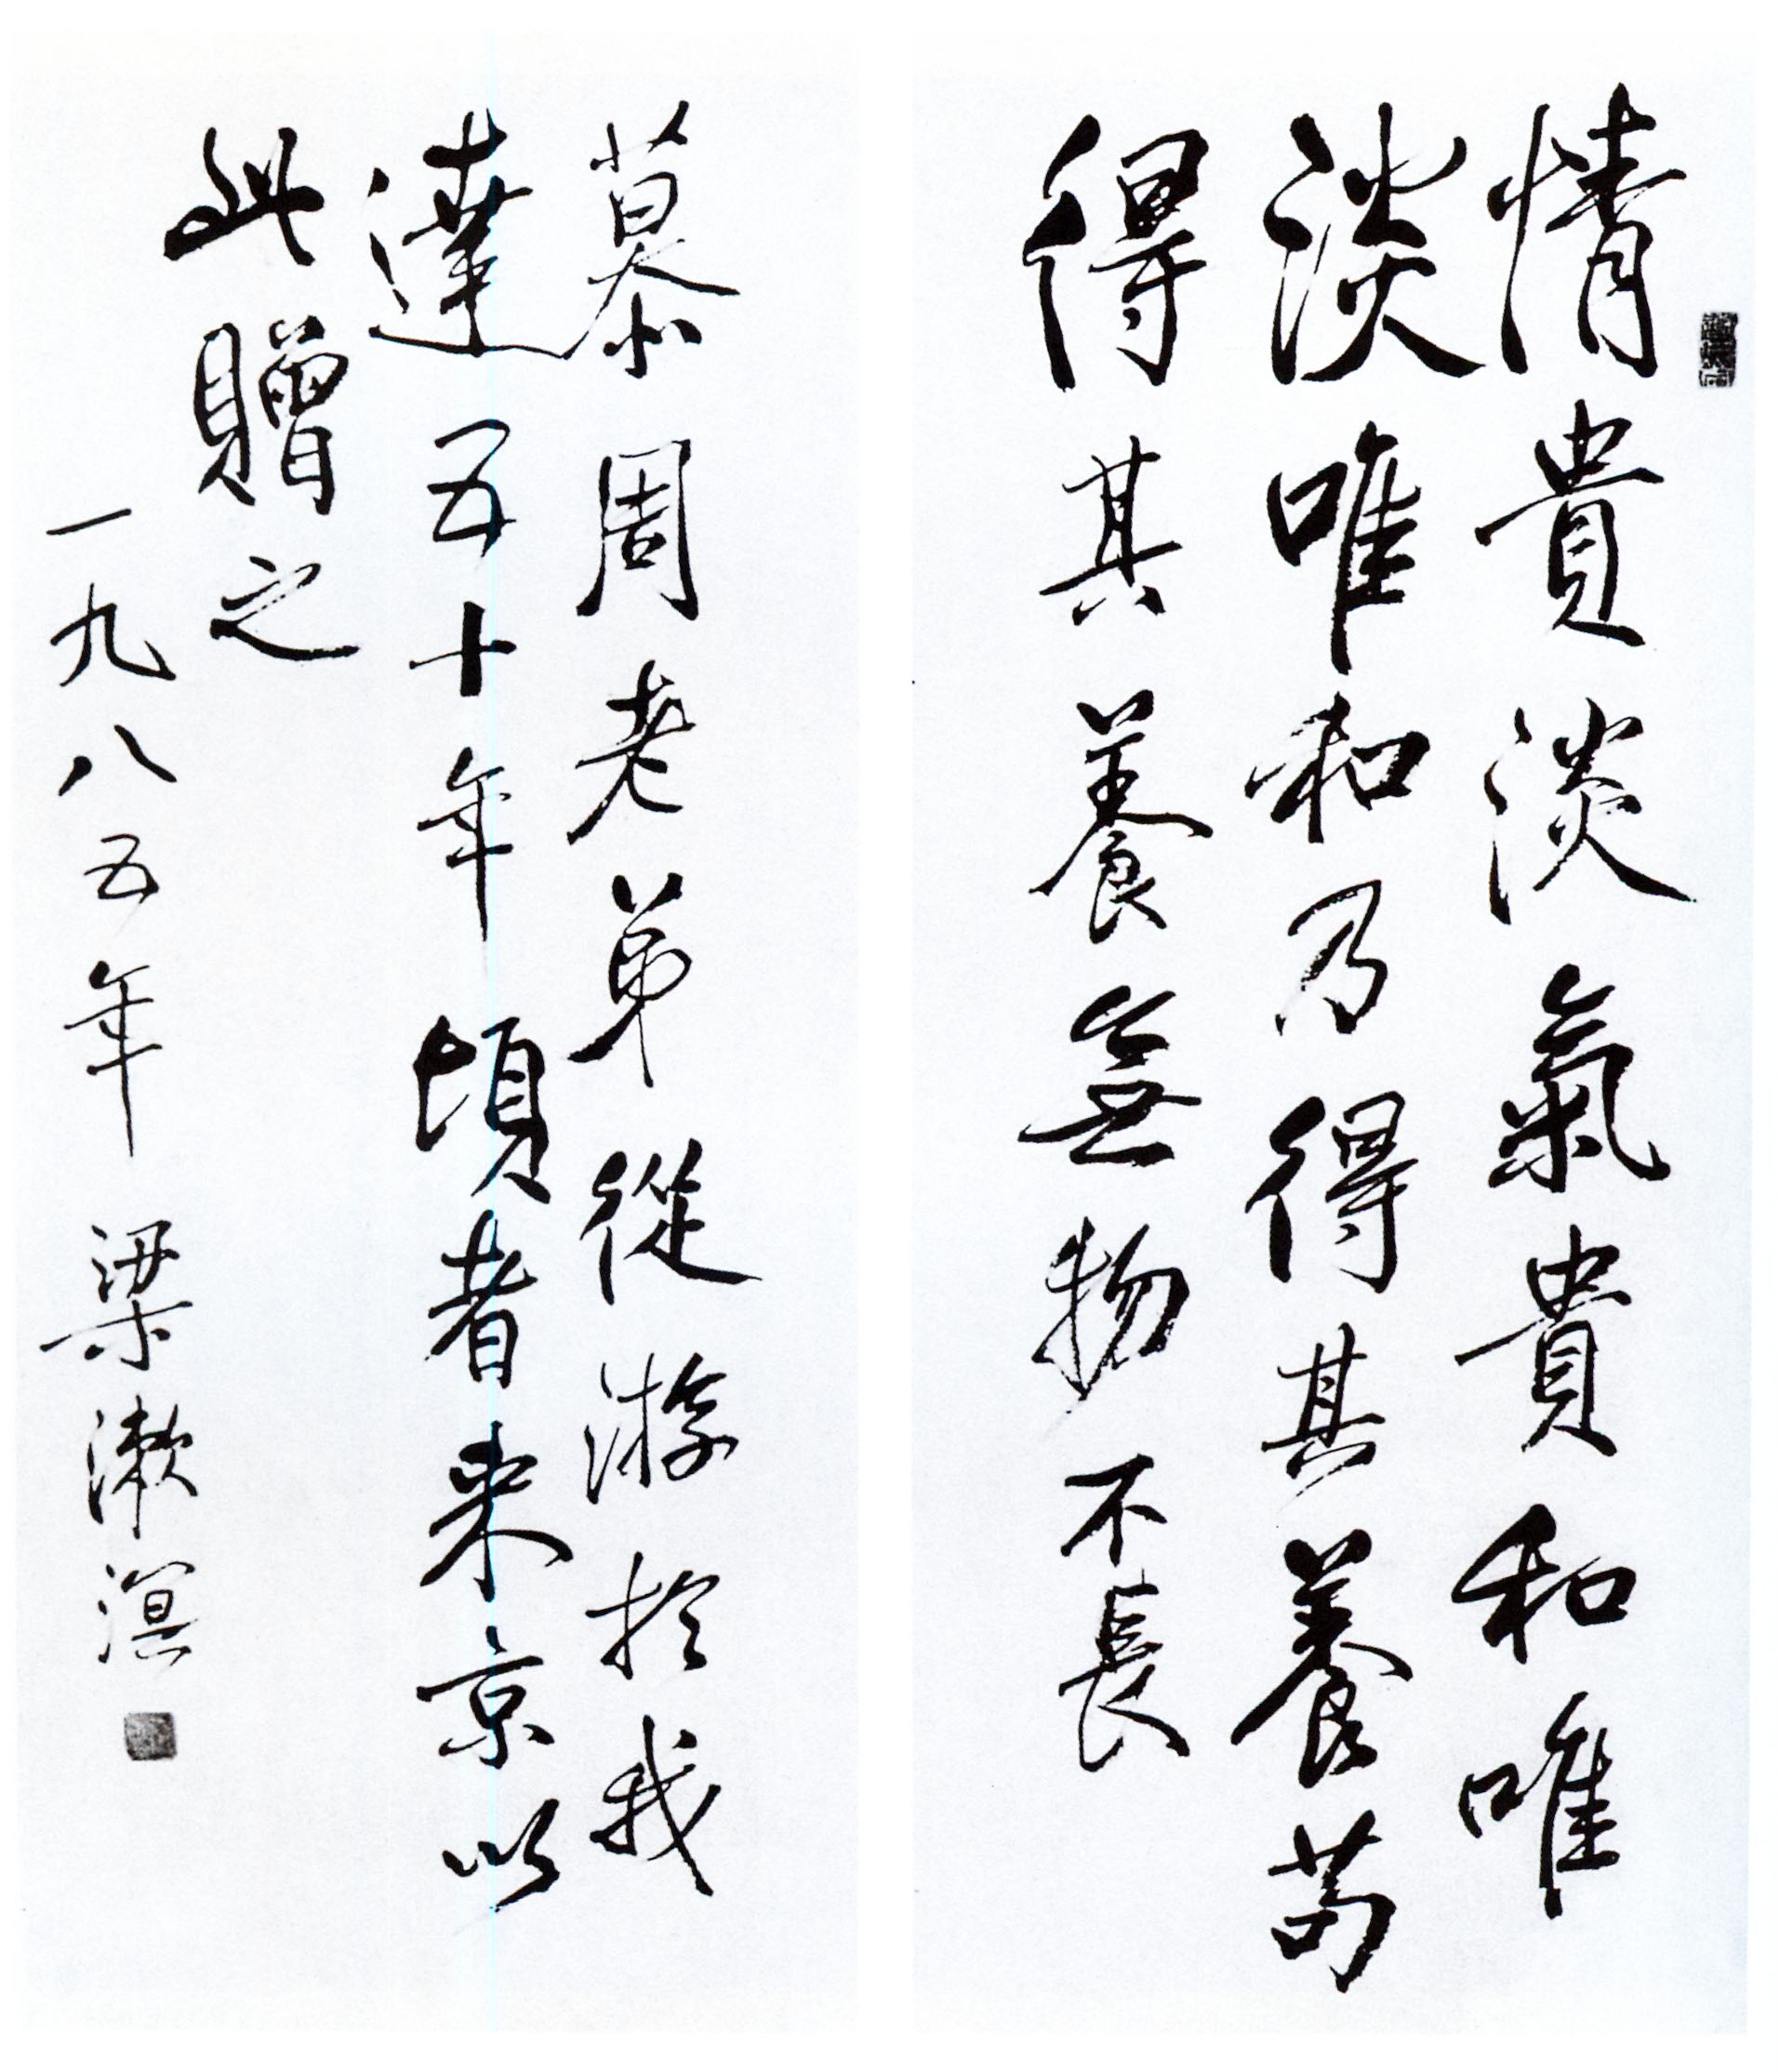 情貴淡氣貴和唯
淡唯和乃得其養苟
得其養無物不長
慕周老弟從游於我
達五十年頃者来京以
此贈之
一九八五年 梁漱溟